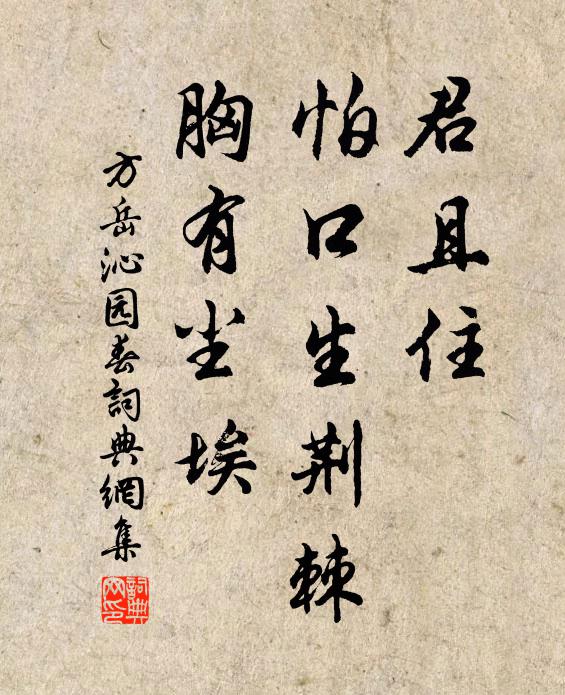 君且住
怕口生荆棘
胸有尘埃
方岳沁园春詞典網集
詞典网印